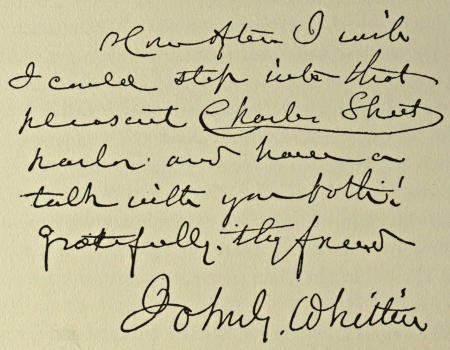 How often I wish
I could step into that
pleasant Charles Street
parlor and have a
talk with you both!
gratefully. thy friend
John G. Whittier